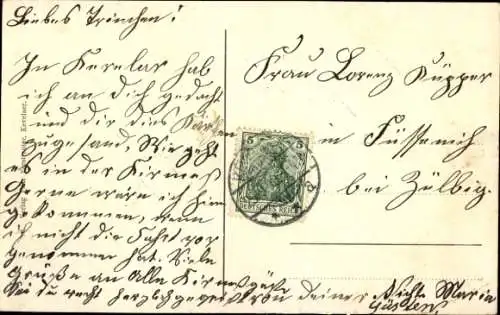 Liebes Trinchen!
In Kevelar hab
ich an dich gedacht
und dir dies Kärtchen
zugesand, Wie geht
es in der Kirmes
Gerne wäre ich hin
gekommen, wenn
ich nicht die Fahrt vor
genommen hat. Viele
Grüße an Alle Kirmesgäste
Sei du recht herzlich gegrüßt von deiner Nichte Maria
Güsten
Frau Lorenz Küpper
in Füssenich
bei Zülbig
5 5
DEUTSCHES REICH
Kevelaer.